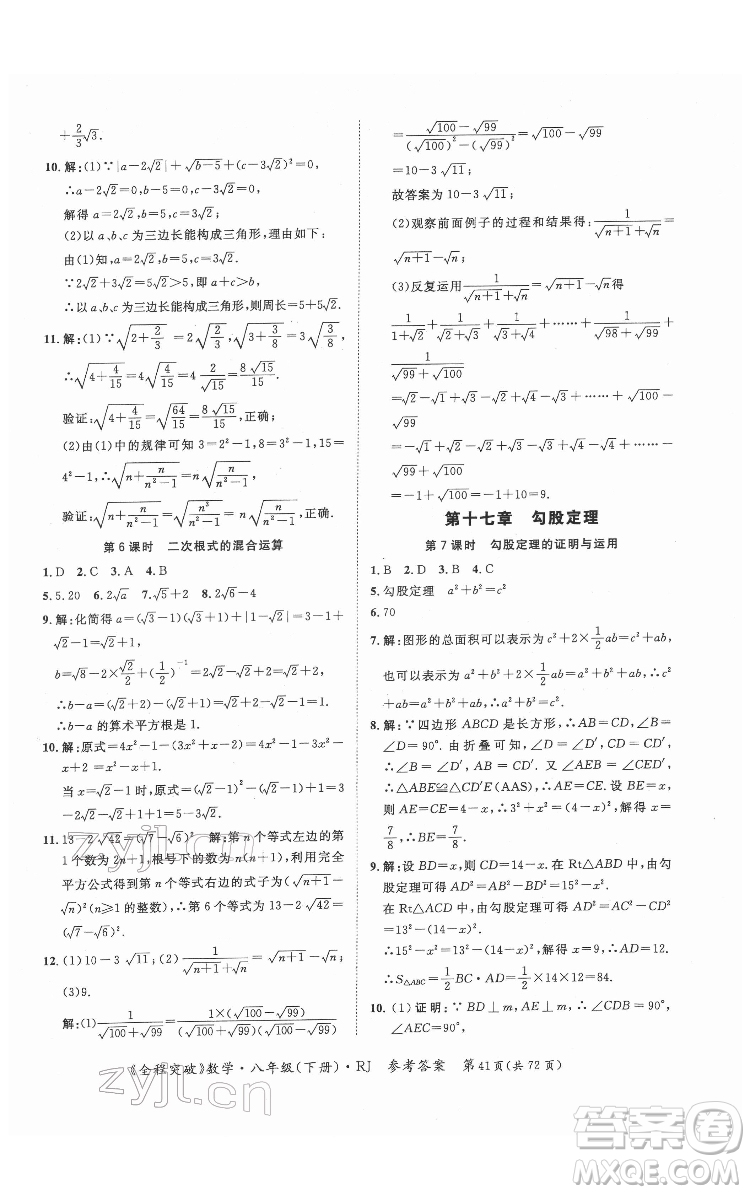 +2/3√3.
10. 解:(1)∵|a-2√2|+√(b-5)+(c-3√2)²=0,
∴a-2√2=0,b-5=0,c-3√2=0,
解得a=2√2,b=5,c=3√2;
(2)以a、b、c为三边长能构成三角形,理由如下:
由(1)知:a=2√2,b=5,c=3√2,
∵2√2+3√2=5√2>5,
∴以a、b、c为三边长能构成三角形,则周长=5+5√2.
11. 解:(1)∵√(2+2/3)=2√(2/3),√(3+3/8)=3√(3/8),
∴√(4+4/15)=4√(4/15)=4×2/√15=8√15/15.
验证:√(4+4/15)=√(64/15)=8√15/15,正确;
(2)由(1)中的规律可知3=2²-1,8=3²-1,15=
4²-1,∴√(n+n/(n²-1))=n√(n/(n²-1)),
验证:√(n+n/(n²-1))=√(n³/(n²-1))=n√(n/(n²-1));正确.
第6课时 二次根式的混合运算
1. D 2. C 3. A 4. B
5. 5.20 6. 2√a 7. √5+2 8. 1
9. 解:化简得a=(√3-1)(√3+1)+|1-√2|=
3-1+√2-1=√2+1,
b=√8-2×√2/2+(1/2)⁻¹=2√2-√2+2=√2+2,
∴b-a=√2+2-√2-1=1,
∴b-a的算术平方根是1.
10. 解:原式=4x²-1-(3x²+3x-2x-2)=4x²-1-3x²-
x+2=x²-x+1.
当x=√2-1时,原式=(√2-1)²-(√2-1)+1=
3-2√2-√2+1+1=5-3√2.
11. 13-2√42=(√7-√6)² 解:第n个等式左边的第
1个数为2n+1,根号下的数为n(n+1),利用完全
平方公式得到第n个等式右边的式子为(√(n+1)-
√n)²(n≥1的整数),∴第6个等式为13-2√42=
(√7-√6)².
12. (1)10-3√11;(2)1/(√(n+1)+√n)=√(n+1)-√n;
(3)9.
解:(1)1/(√100+√99)=1×(√100-√99)/((√100+√99)(√100-√99))
=(√100-√99)/((√100)²-(√99)²)=(√100-√99)/(100-99)=√100-√99
=10-3√11;
故答案为10-3√11;
(2)观察前面例子的过程和结果得:1/(√(n+1)+√n)=
√(n+1)-√n;
(3)反复运用1/(√(n+1)+√n)=√(n+1)-√n得
1/(1+√2)+1/(√2+√3)+1/(√3+√4)+……+1/(√98+√99)+
1/(√99+√100)
=-√1+√2-√2+√3-√3+√4-√4+√5-……+√99-
√99+√100
=-√1+√2-√2+√3-√3+√4-√4+√5-……+√99-
√99+√100
=-1+√100=-1+10=9.
第十七章 勾股定理
第7课时 勾股定理的证明与运用
1. B 2. D 3. B 4. C
5. 勾股定理 a²+b²=c²
6. 70
7. 解:图形的总面积可以表示为c²+2×1/2ab=c²+ab,
也可以表示为a²+b²+2×1/2ab=a²+b²+ab,∴c²
+ab=a²+b²+ab,∴a²+b²=c².
8. 解:∵四边形ABCD是长方形,∴AB=CD,∠B=
∠D=90°.由折叠可知,∠D=∠D′,CD=CD′,
∴∠B=∠D′,AB=CD′.又∵∠AEB=∠CED′,
∴△ABE≌△CD′E(AAS),∴AE=CE.
则AE=CE=4-BE,∴3²+BE²=(4-BE)²,∴BE=
7/8,∴BE=7/8.
9. 解:设BD=x,则CD=14-x.在Rt△ABD中,由勾
股定理可得AD²=AB²-BD²=15²-x²,
在Rt△ACD中,由勾股定理可得AD²=AC²-CD²
=13²-(14-x)²,
∴15²-x²=13²-(14-x)²,解得x=9,∴AD=12.
∴S△ABC=1/2BC·AD=1/2×14×12=84.
10. (1)证明:∵BD⊥m,AE⊥m,∴∠CDB=90°,
∠AEC=90°,
《全程突破》数学·八年级(下册)·RJ 参考答案 第41页(共72页)
zyjl.cn
zyjl.cn
答案卷